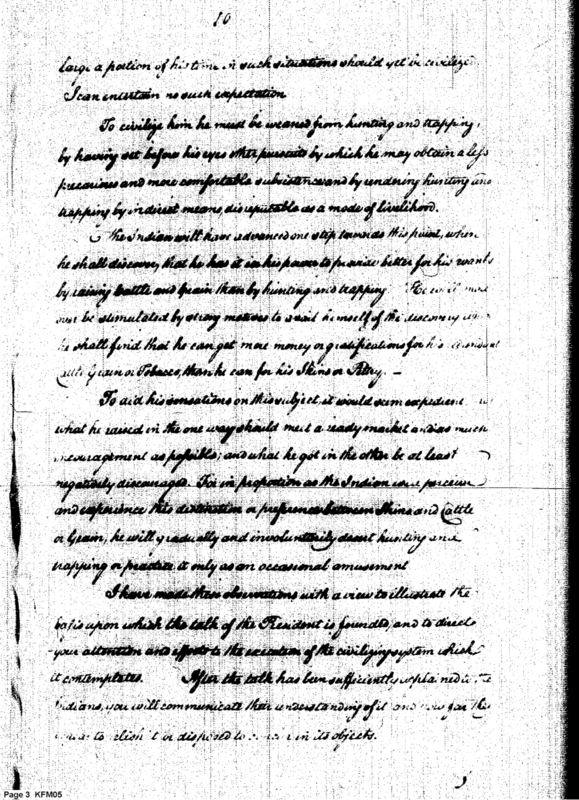 10
large a portion of his time in such situations should yet be civilized
I can entertain no such expectation
To civilize him he must be weaned from hunting and trapping,
by having set before his eyes other pursuits by which he may obtain a less
precarious and more comfortable subsistence and by rendering hunting and
trapping by indirect means, disreputable as a mode of livelihood.
The Indian will have advanced one step towards this point, when
he shall discover, that he has it in his power to provide better for his wants
by raising Cattle and Grain than by hunting and trapping. He will more
over be stimulated by strong motives to avail himself of the discovery when
he shall find that he can get more money or gratifications for his
Cattle Grain or Tobacco, than he can for his Skins or Peltry. —
To aid his sensations on this subject, it would seem expedient
what he raised in the one way should meet a ready market and as much
encouragement as possible; and what he got in the other be at least
negatively discouraged. For in proportion as the Indian perceive
and experience this distinction or preference between Skins and Cattle
or Grain, he will gradually and involuntarily desert hunting and
trapping or practice it only as an occasional amusement
I have made these observations with a view to illustrate the
basis upon which the talk of the President is founded, and to direct
your attention and efforts to the execution of the civilizing system which
it contemplates. After the talk has been sufficiently explained to the
Indians, you will communicate their understanding of it and how far they
relish it or disposed to in its objects.
Page 3 KFM05